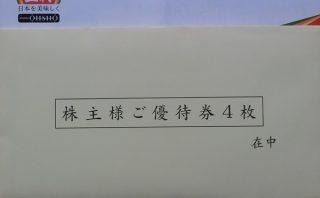 日本を美味しく
OHSHO
株主様ご優待券4枚
在中